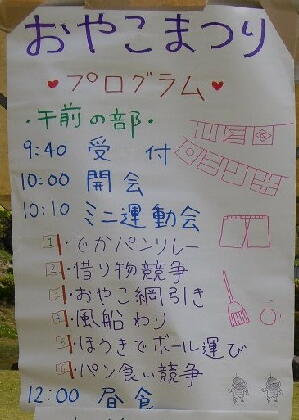 おやこまつり
♥プログラム♥
・午前の部・
9:40 受付
10:00 開会
10:10 ミニ運動会
1・でかパンリレー
2・借り物競争
3・おやこ綱引き
4・風船わり
5・ほうきでボール運び
6・パン食い競争
12:00 昼食